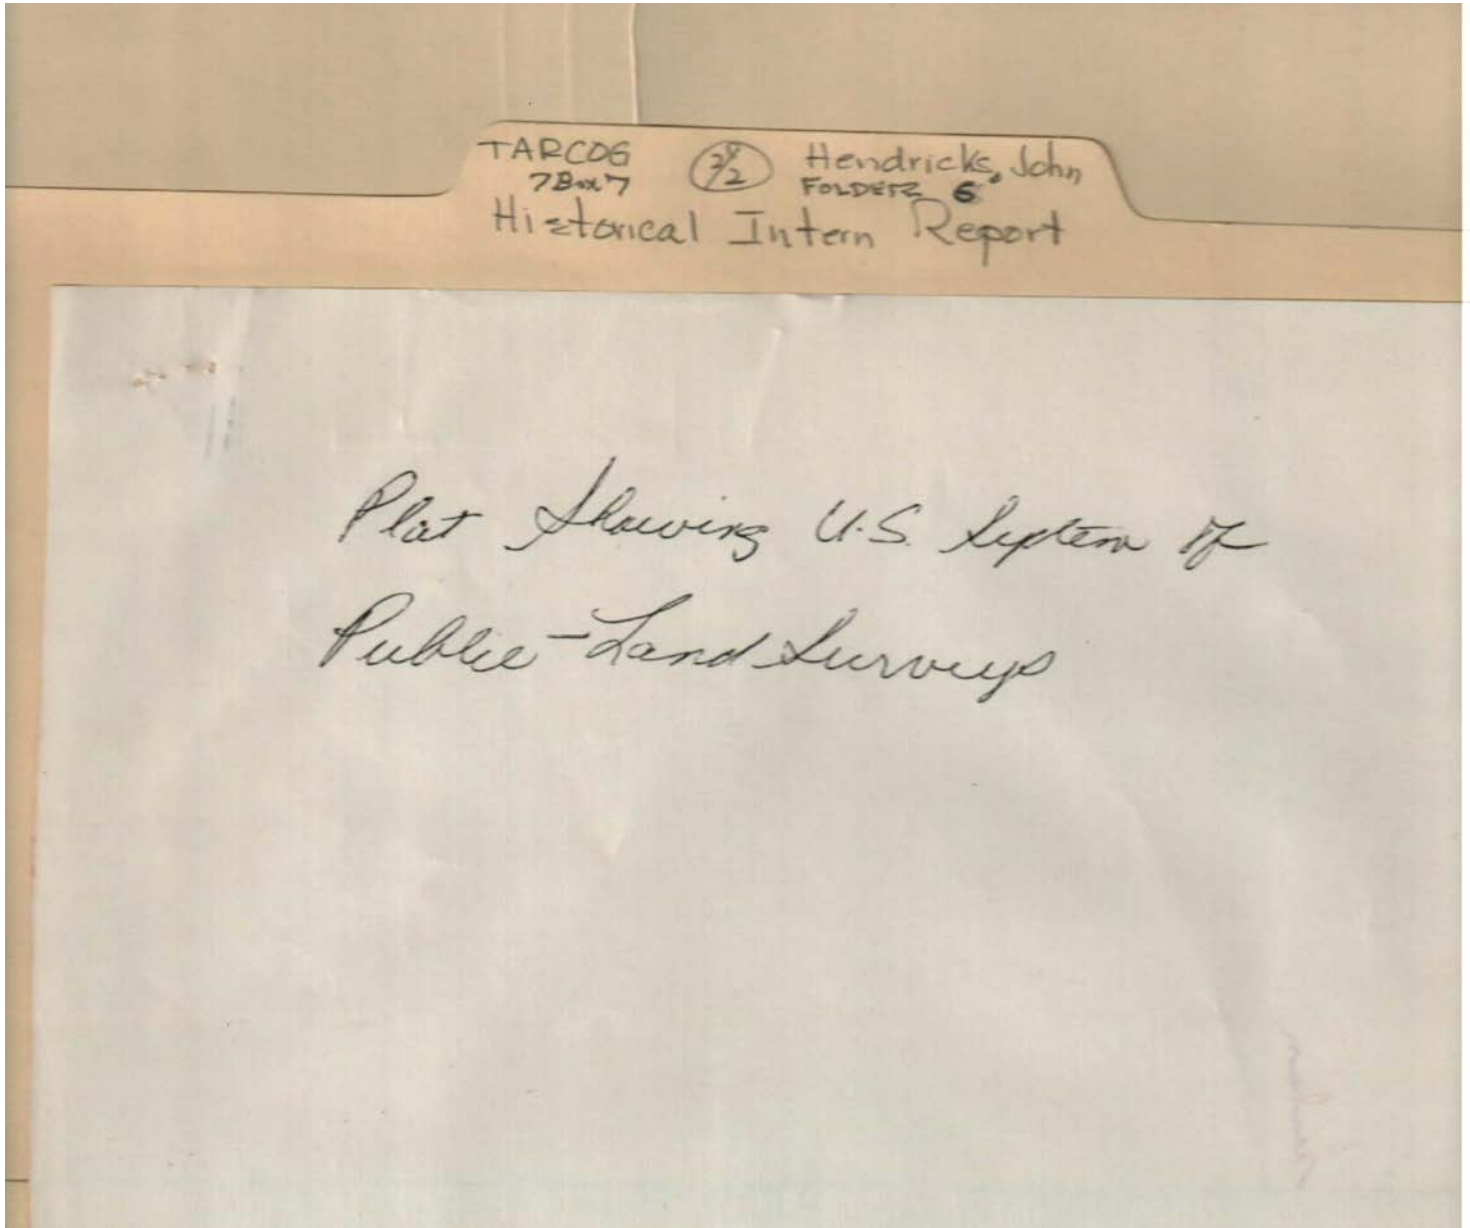 TARCOG Hendricks, John
7Box7 FOLDER 6
Historical Intern Report
Plat Showing U.S. System of
Public-Land Surveys